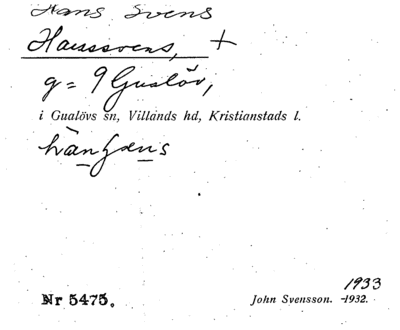 Hans Svens
Hanssvens, +
g= 9 Gualöv,
i Gualövs sn, Villands hd, Kristianstads l.
hànsæns
1933
Nr 5475. John Svensson. -1932.